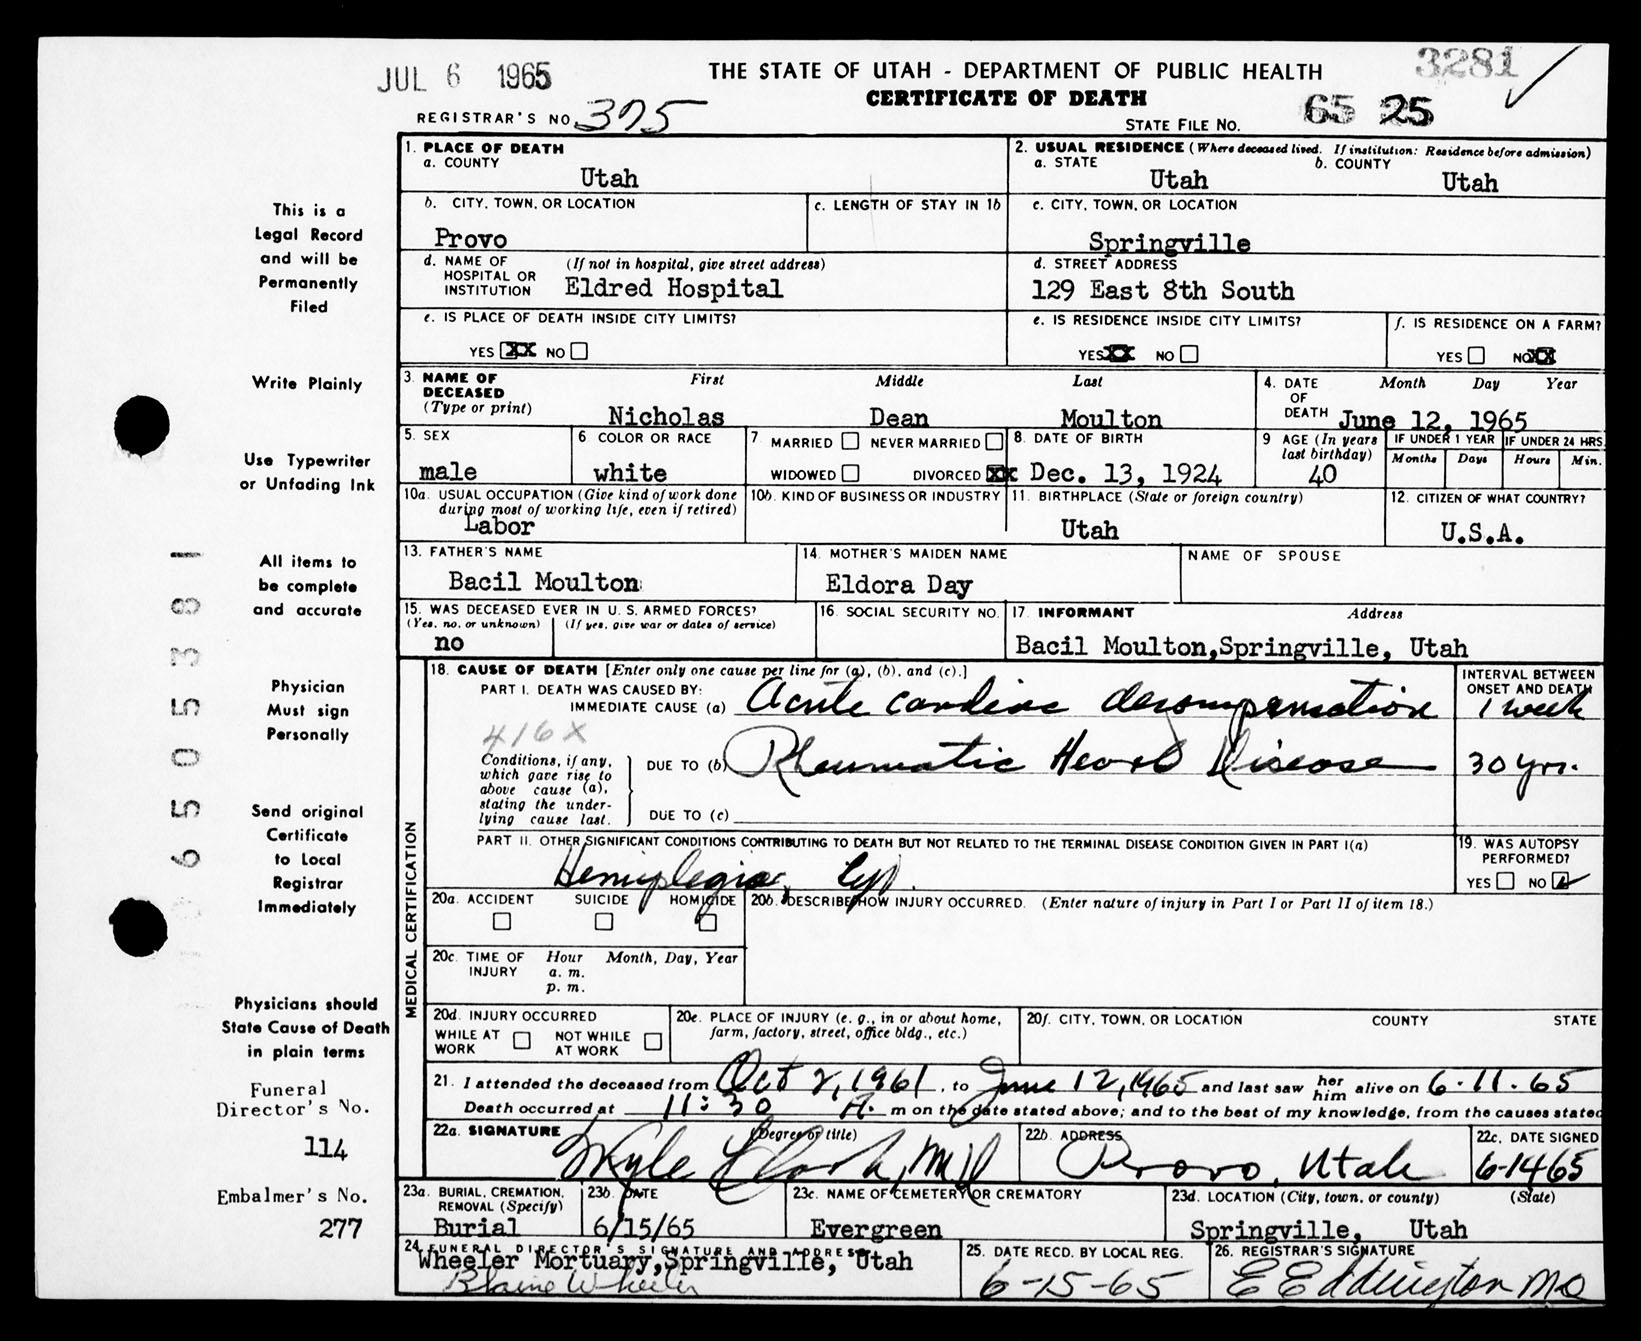 JUL 6 1965
THE STATE OF UTAH - DEPARTMENT OF PUBLIC HEALTH
3281
CERTIFICATE OF DEATH
REGISTRAR'S NO. 375
STATE FILE NO. 65 25
This is a
Legal Record
and will be
Permanently
Filed
Write Plainly
Use Typewriter
or Unfading Ink
All items to
be complete
and accurate
Physician
Must sign
Personally
Send original
Certificate
to Local
Registrar
Immediately
Physicians should
State Cause of Death
in plain terms
Funeral
Director's No.
114
Embalmer's No.
277
1. PLACE OF DEATH
a. COUNTY
Utah
2. USUAL RESIDENCE (Where deceased lived. If institution: Residence before admission)
a. STATE
Utah
b. COUNTY
Utah
b. CITY, TOWN, OR LOCATION
Provo
c. LENGTH OF STAY IN 1b
c. CITY, TOWN, OR LOCATION
Springville
d. NAME OF HOSPITAL OR INSTITUTION
(If not in hospital, give street address)
Eldred Hospital
d. STREET ADDRESS
129 East 8th South
e. IS PLACE OF DEATH INSIDE CITY LIMITS?
YES XX NO
e. IS RESIDENCE INSIDE CITY LIMITS?
YES XX NO
f. IS RESIDENCE ON A FARM?
YES NO XX
3. NAME OF DECEASED
(Type or print)
First Middle Last
Nicholas Dean Moulton
4. DATE OF DEATH
Month Day Year
June 12, 1965
5. SEX
male
6 COLOR OR RACE
white
7 MARRIED NEVER MARRIED
WIDOWED DIVORCED XX
8. DATE OF BIRTH
Dec. 13, 1924
9 AGE (In years last birthday)
40
IF UNDER 1 YEAR
Months Days
IF UNDER 24 HRS.
Hours Min.
10a. USUAL OCCUPATION (Give kind of work done
during most of working life, even if retired)
Labor
10b. KIND OF BUSINESS OR INDUSTRY
11. BIRTHPLACE (State or foreign country)
Utah
12. CITIZEN OF WHAT COUNTRY?
U.S.A.
13. FATHER'S NAME
Bacil Moulton
14. MOTHER'S MAIDEN NAME
Eldora Day
NAME OF SPOUSE
15. WAS DECEASED EVER IN U. S. ARMED FORCES?
(Yes, no, or unknown) (If yes, give war or dates of service)
no
16. SOCIAL SECURITY NO.
17. INFORMANT Address
Bacil Moulton,Springville, Utah
MEDICAL CERTIFICATION
18. CAUSE OF DEATH [Enter only one cause per line for (a), (b), and (c).]
PART I. DEATH WAS CAUSED BY:
IMMEDIATE CAUSE (a) Acute cardiac decompensation
INTERVAL BETWEEN
ONSET AND DEATH
1 week
416X
Conditions, if any,
which gave rise to
above cause (a),
stating the under-
lying cause last.
DUE TO (b) Rheumatic Heart Disease
30 yrs.
DUE TO (c)
PART II. OTHER SIGNIFICANT CONDITIONS CONTRIBUTING TO DEATH BUT NOT RELATED TO THE TERMINAL DISEASE CONDITION GIVEN IN PART I(a)
Hemiplegia,
19. WAS AUTOPSY
PERFORMED?
YES NO
20a. ACCIDENT SUICIDE HOMICIDE
20b. DESCRIBE HOW INJURY OCCURRED. (Enter nature of injury in Part I or Part II of item 18.)
20c. TIME OF INJURY
Hour Month, Day, Year
a. m.
p. m.
20d. INJURY OCCURRED
WHILE AT WORK NOT WHILE AT WORK
20e. PLACE OF INJURY (e. g., in or about home,
farm, factory, street, office bldg., etc.)
20f. CITY, TOWN, OR LOCATION COUNTY STATE
21. I attended the deceased from Oct 2, 1961, to June 12, 1965 and last saw her him alive on 6-11-65
Death occurred at 11:30 A. m on the date stated above; and to the best of my knowledge, from the causes stated
22a. SIGNATURE (Degree or title)
Wyle Clark, MD
22b. ADDRESS
Provo, Utah
22c. DATE SIGNED
6-14 65
23a. BURIAL, CREMATION,
REMOVAL (Specify)
Burial
23b. DATE
6/15/65
23c. NAME OF CEMETERY OR CREMATORY
Evergreen
23d. LOCATION (City, town, or county) (State)
Springville, Utah
24. FUNERAL DIRECTOR'S SIGNATURE AND ADDRESS
Wheeler Mortuary,Springville, Utah
Blaine Wheeler
25. DATE RECD. BY LOCAL REG.
6-15-65
26. REGISTRAR'S SIGNATURE
E E Eddington MD